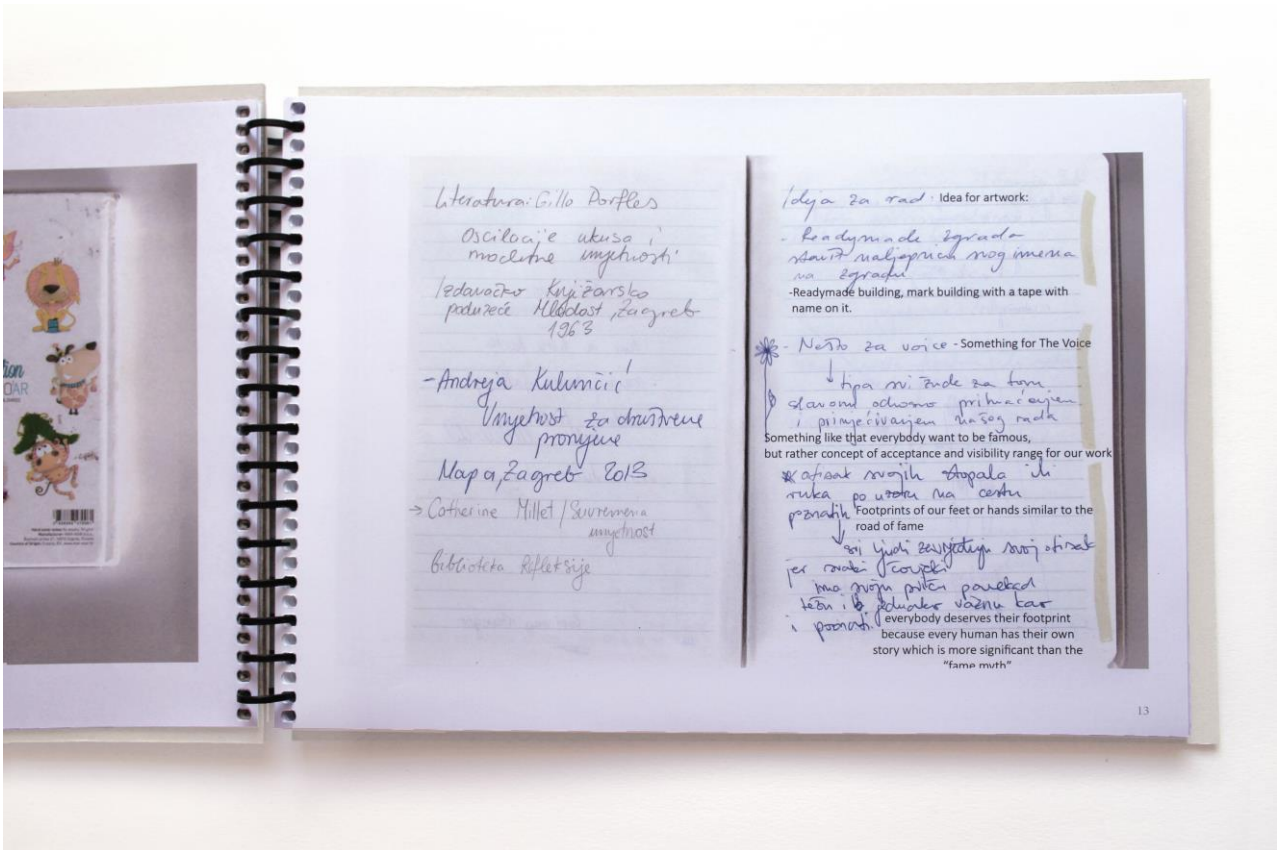 tion
DAR
Literatura: Gillo Dorfles
Oscilacije ukusa i
moderne umjetnosti
Izdavačko Knjižarsko
poduzeće Mladost, Zagreb
1963
-Andreja Kulunčić
Umjetnost za društvene
promjene
Mapa, Zagreb 2013
→ Catherine Millet / Suvremena
umjetnost
Biblioteka Refleksije
Ideja za rad: Idea for artwork:
- Readymade zgrada
staviti naljepnicu svog imena
na zgradu
-Readymade building, mark building with a tape with
name on it.
- Nešto za voice - Something for The Voice
↓ tipa svi žude za tom
slavom odnosno prihvaćanjem
i primjećivanjem našeg rada
Something like that everybody want to be famous,
but rather concept of acceptance and visibility range for our work
otisak svojih stopala ili
ruka po uzoru na cestu
poznatih Footprints of our feet or hands similar to the
road of fame
↓ svi ljudi zavrjeđuju svoj otisak
jer svaki čovjek
ima svoju priču ponekad
težu i jednako važnu kao
i poznati. everybody deserves their footprint
because every human has their own
story which is more significant than the
"fame myth"
13